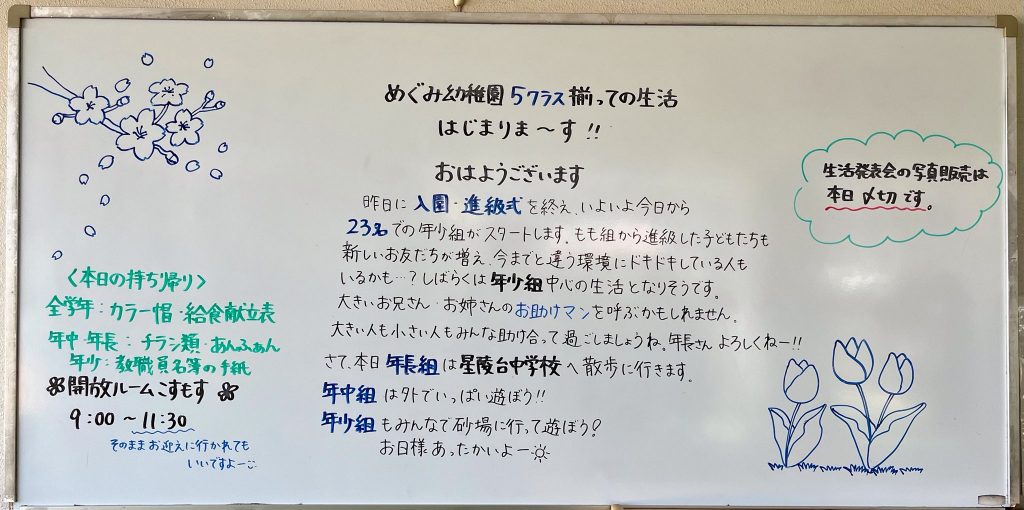 めぐみ幼稚園5クラス揃っての生活
はじまりま〜す!!
おはようございます
昨日に入園・進級式を終え、いよいよ今日から
23名での年少組がスタートします。もも組から進級した子どもたちも
新しいお友だちが増え、今までと違う環境にドキドキしている人も
いるかも…?しばらくは年少組中心の生活となりそうです。
大きいお兄さん・お姉さんのお助けマンを呼ぶかもしれません。
大きい人も小さい人もみんな助け合って過ごしましょうね。年長さんよろしくねー!!
さて、本日年長組は星陵台中学校へ散歩に行きます。
年中組は外でいっぱい遊ぼう!!
年少組もみんなで砂場に行って遊ぼう?
お日様あったかいよー☼
生活発表会の写真販売は
本日〆切です。
〈本日の持ち帰り〉
全学年:カラー帽・給食献立表
年中・年長:チラシ類・あんふぁん
年少:教職員名簿の手紙
開放ルームこすもす
9:00〜11:30
そのままお迎えに行かれても
いいですよー